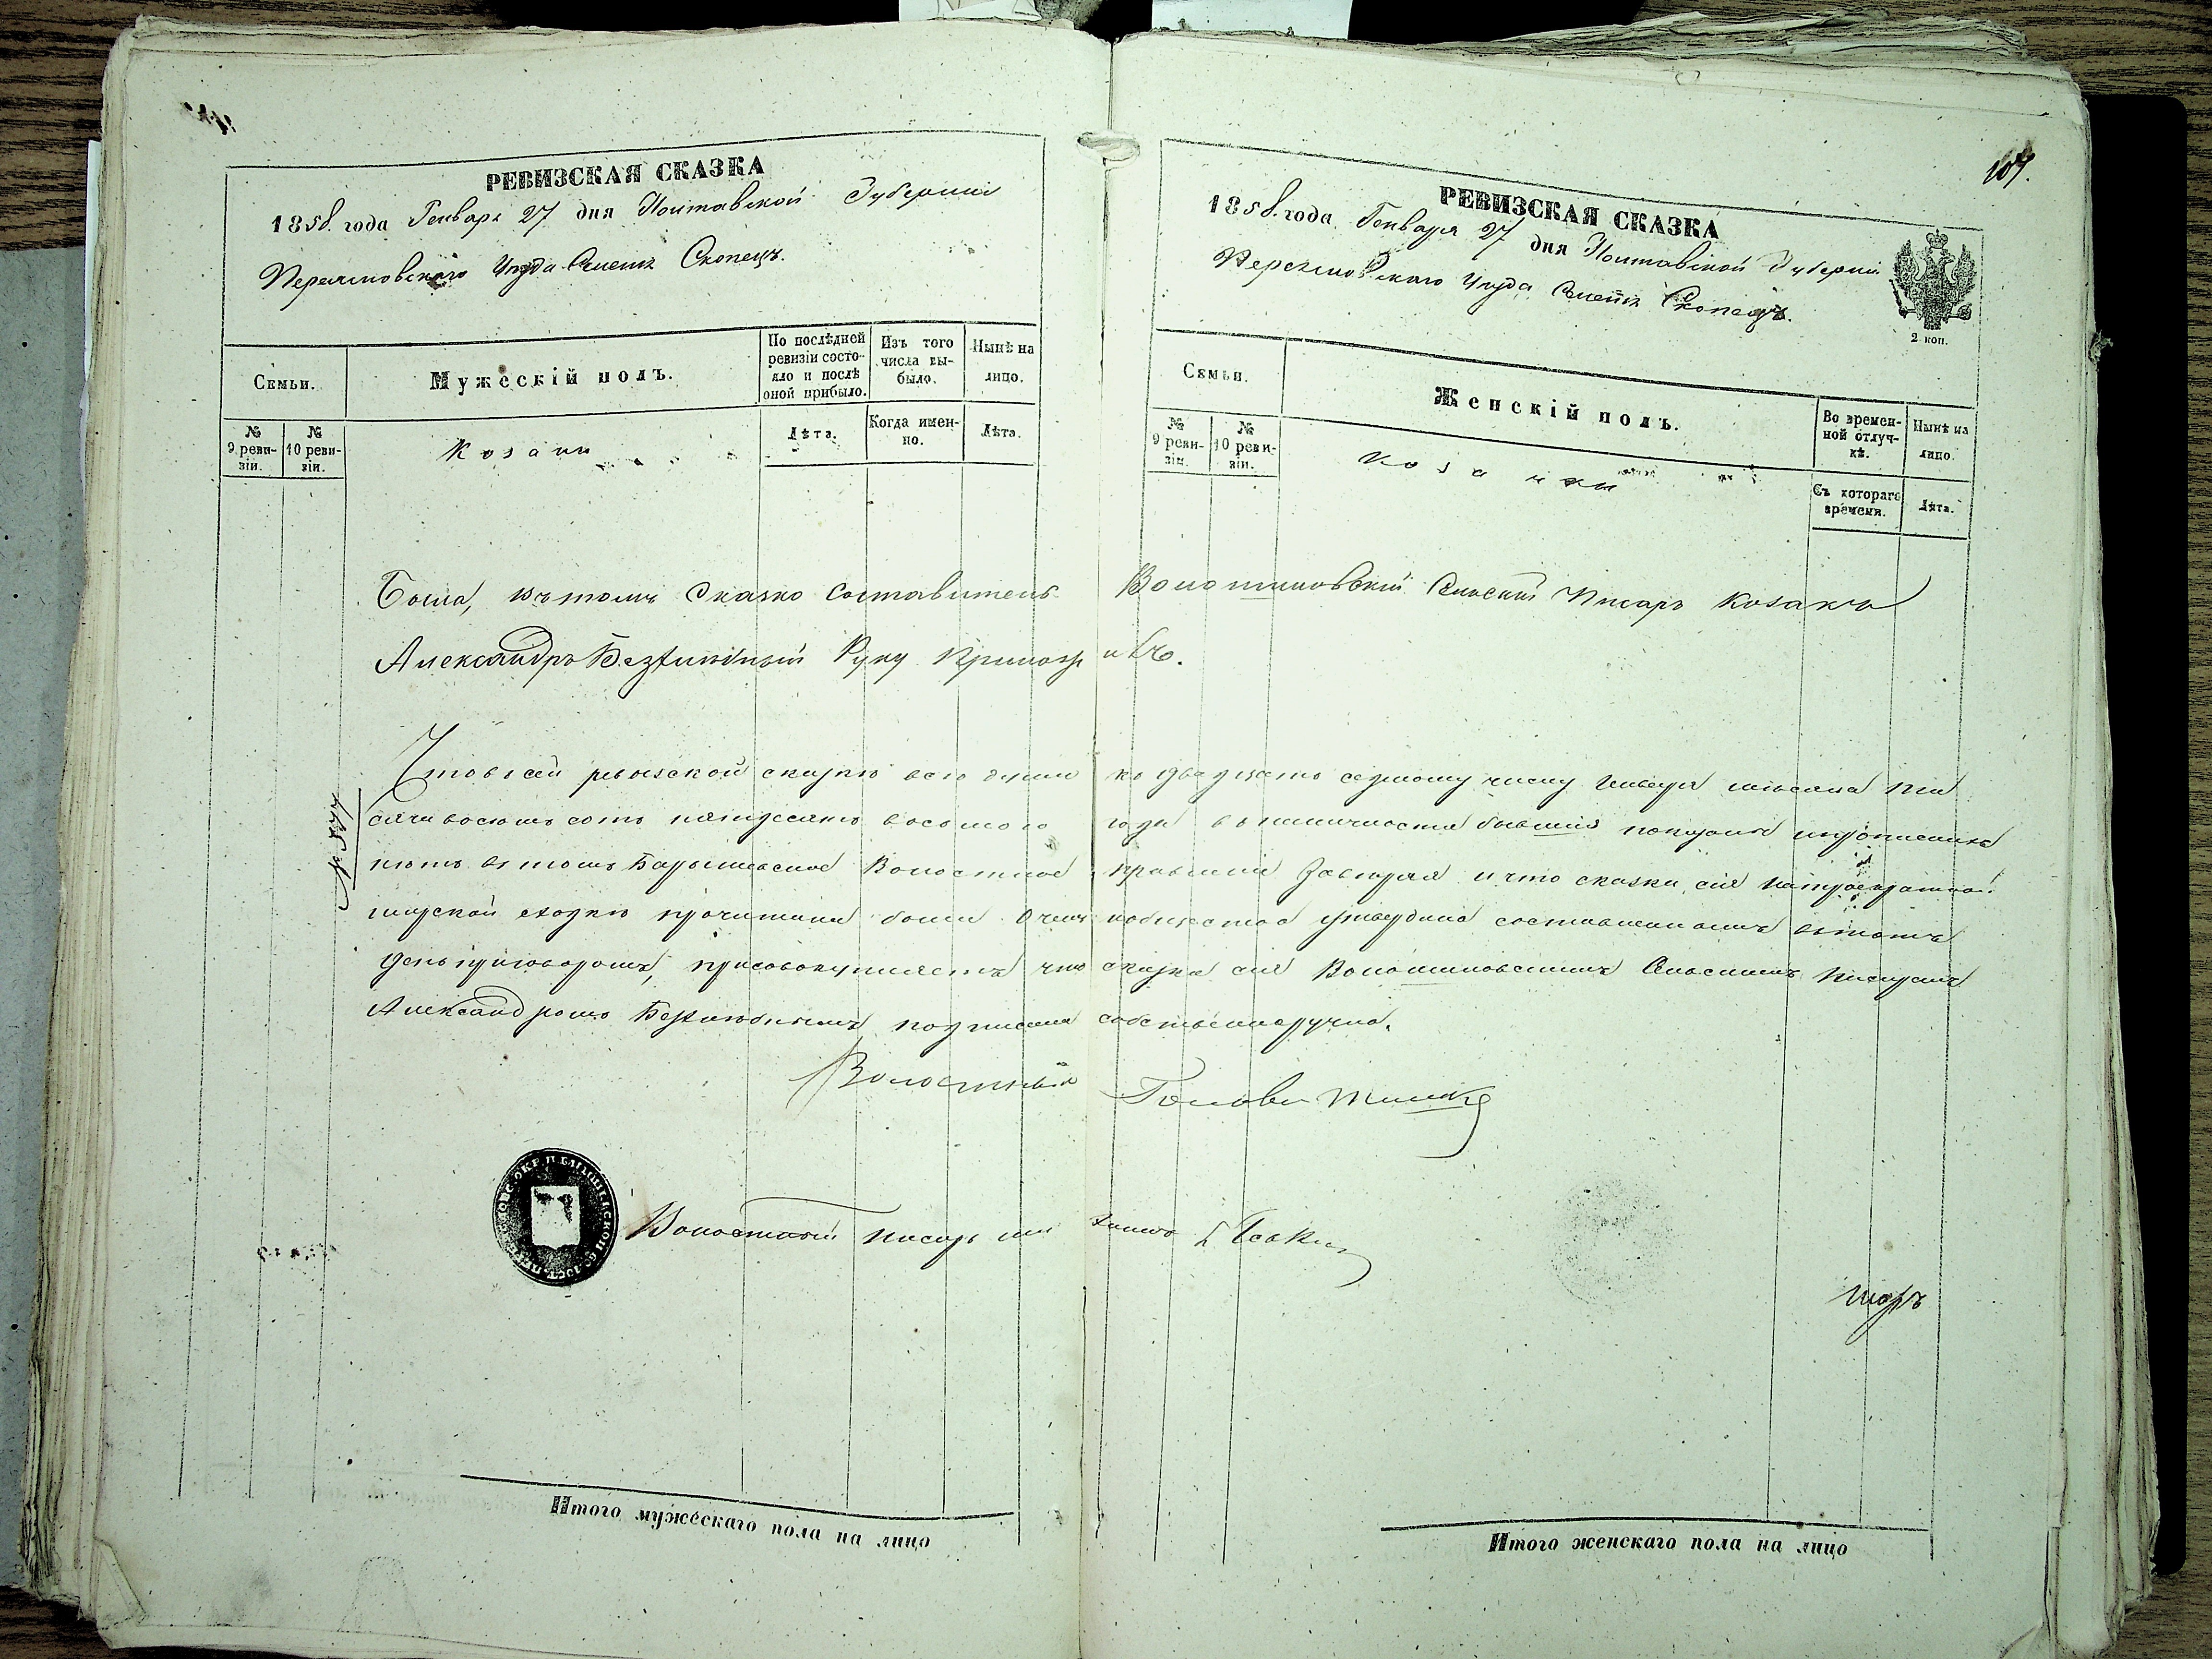 РЕВИЗСКАЯ СКАЗКА
1858. года Генваря 27 дня Полтавской Губерніи
Переяславского Уезда Скопецъ.
Семьи.
Мужескій полъ.
По послѣдней ревизіи состояло и послѣ оной прибыло.
Изъ того числа выбыло.
Нынѣ на лицо.
№ 9 ревизіи.
№ 10 ревизіи.
Козаки
Лѣта.
Когда именно.
Лѣта.
107.
РЕВИЗСКАЯ СКАЗКА
1858. года Генваря 27 дня Полтавской Губерніи
Переяславского Уезда Скопецъ.
2 коп.
Семьи.
Женскій полъ.
Во временной отлучкѣ.
Нынѣ на лицо.
№ 9 ревизіи.
№ 10 ревизіи.
Козачки
Съ котораго времени.
Лѣта.
сказко Составитель Волошиновскій Сельскій Писаръ Козакъ
Александръ Безлюдный Руку Приложилъ.
Что въ сей ревизской сказкѣ всѣ души по двадцать седьмому числу Генваря мѣсяца ты
сяча восемь сотъ пятдесять восьмого года въ наличности бывшія показаны и прописныхъ
нетъ въ томъ Барышевское Волостное правленіе и что сказка сія
мирской сходкѣ прочитана была о чемъ составленнымъ
день приговоромъ, присовокупляетъ что сказка сія Волошиновскимъ Сельскимъ Писаремъ
Александромъ Безлюднымъ подписана собственноручно.
Волостный Голова
Волостный писарь
Итого мужескаго пола на лицо
Итого женскаго пола на лицо